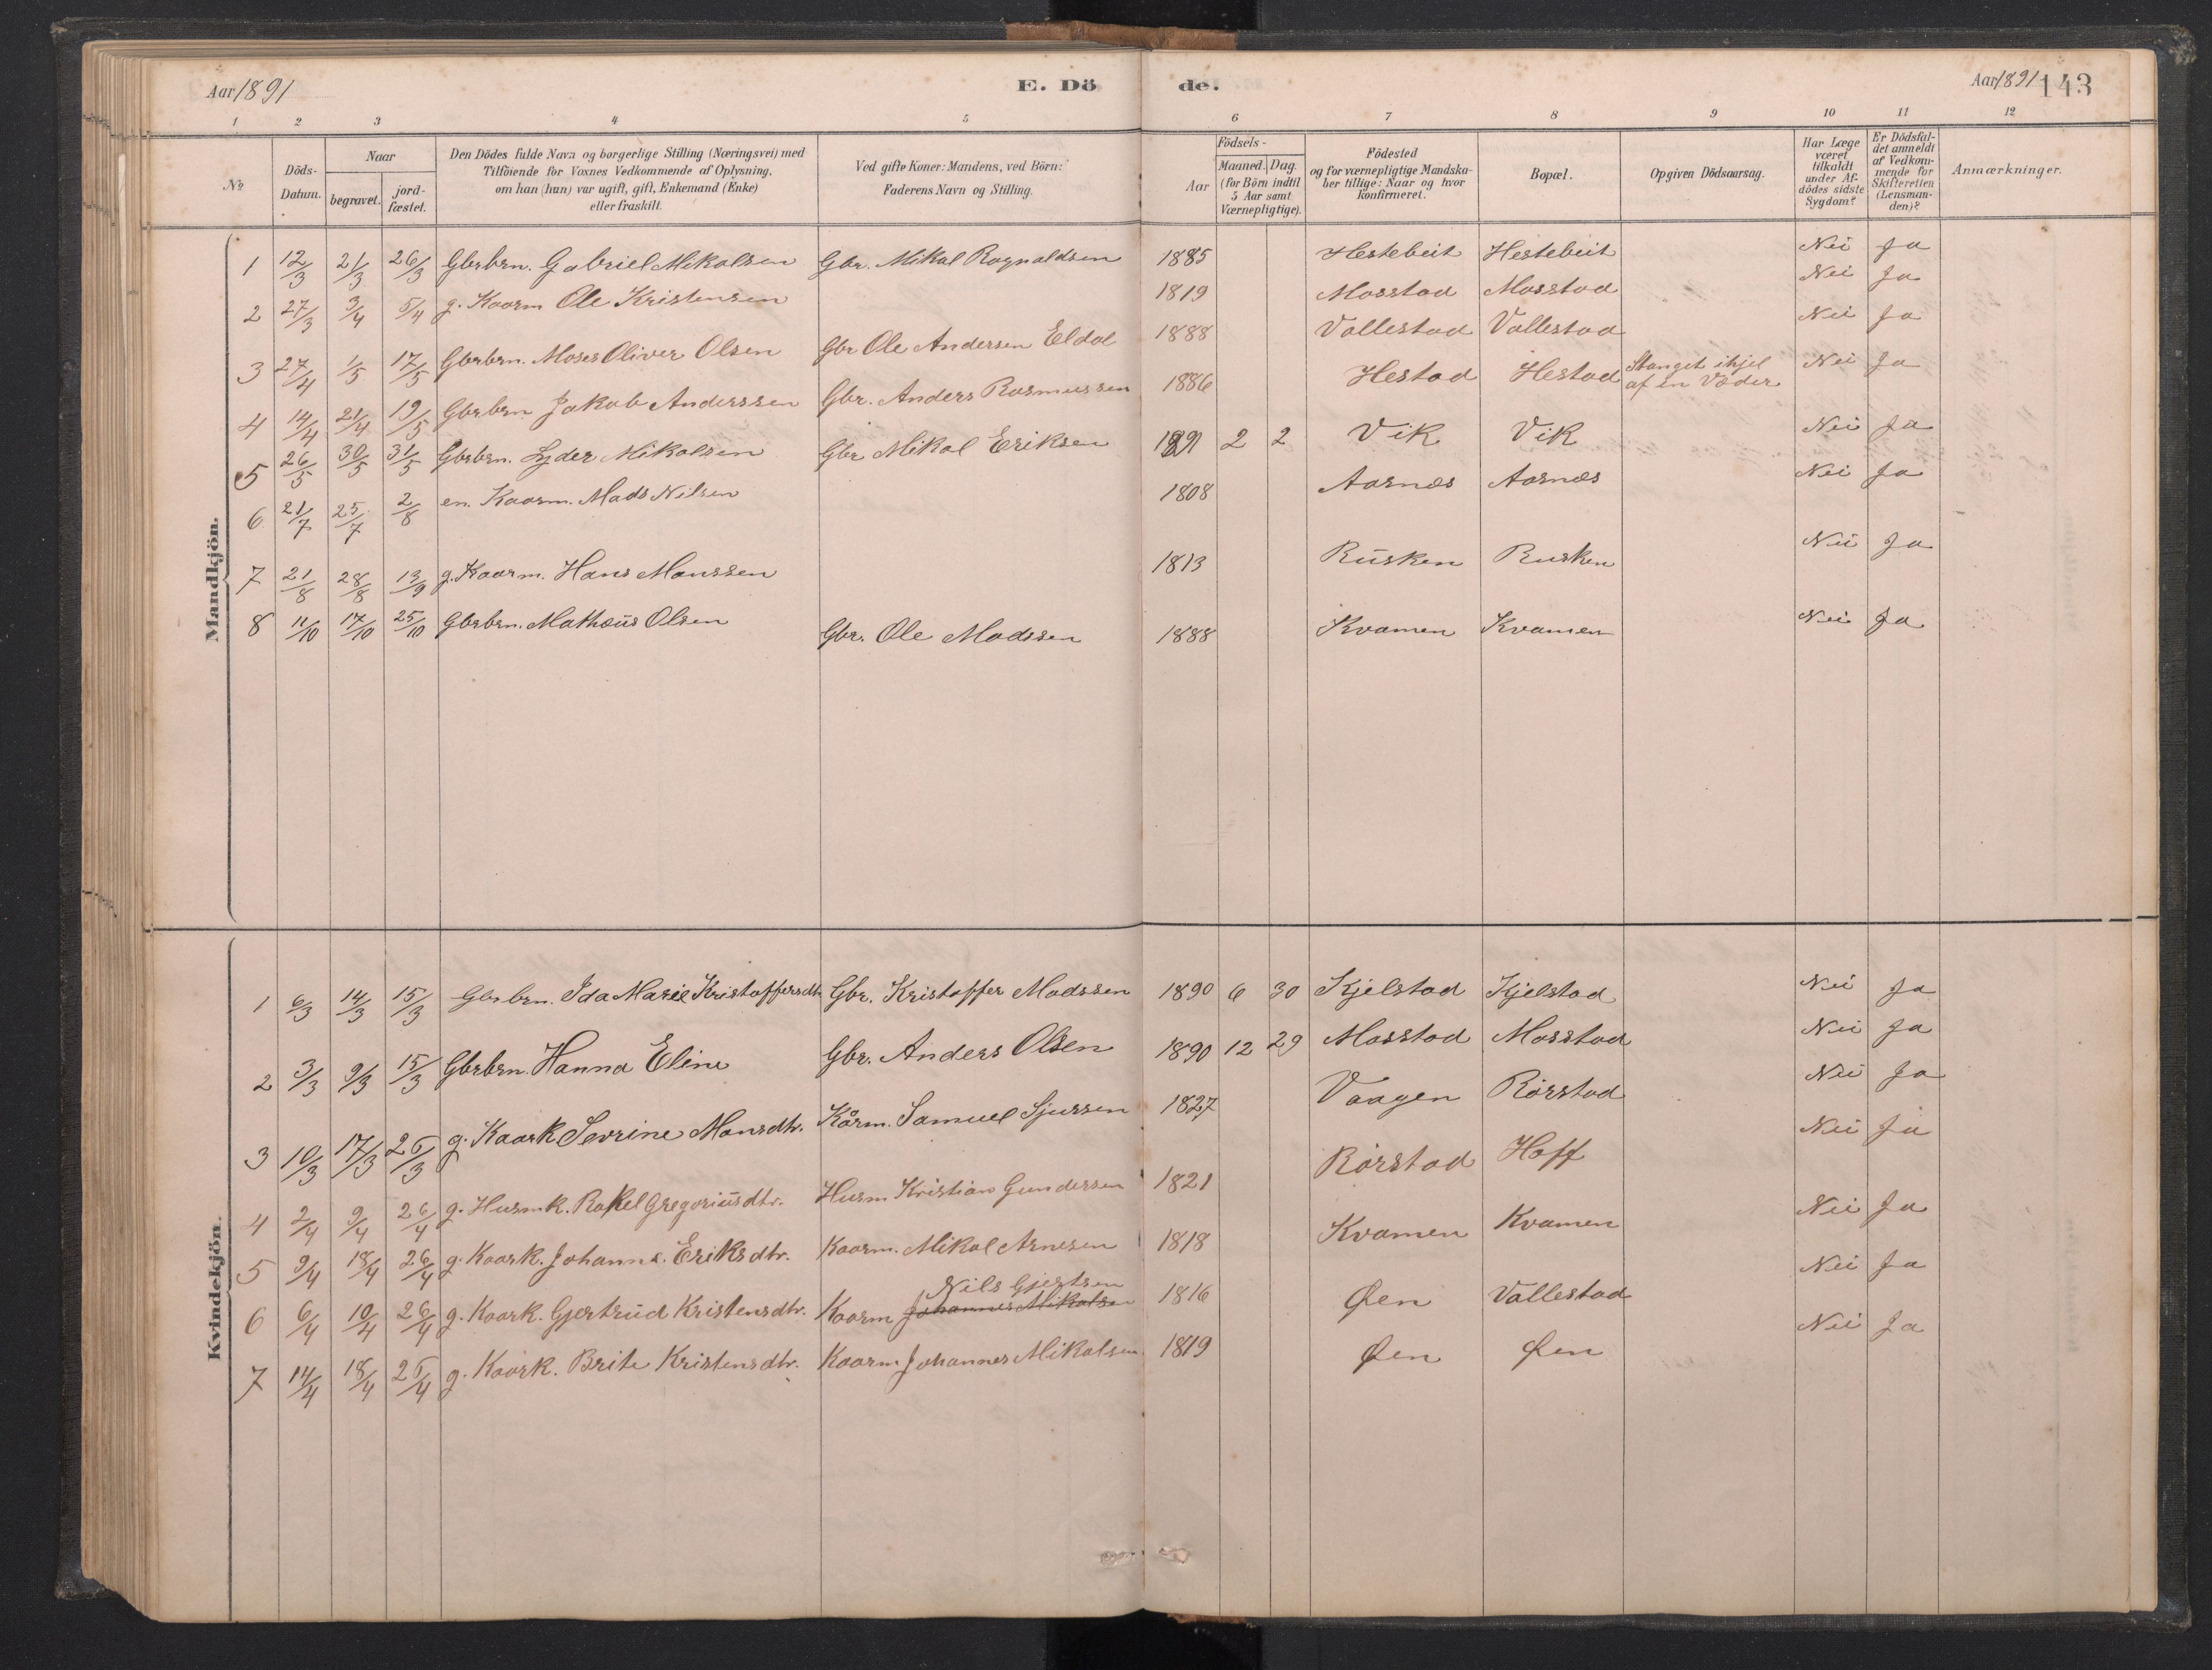 Aar 1891 E. Dö de. Aar 1891 143
1 2 3 4 5 6 7 8 9 10 11 12
No
Döds-Datum.
Naar
begravet.
jord-fæstet.
Den Dödes fulde Navn og borgerlige Stilling (Næringsvei) med
Tilföiende for Voxnes Vedkommende af Oplysning,
om han (hun) var ugift, gift, Enkemand (Enke)
eller fraskilt.
Ved gifte Koner: Mandens, ved Börn:
Faderens Navn og Stilling.
Födsels-
Aar
Maaned. Dag.
(for Börn indtil
5 Aar samt
Værnepligtige).
Födested
og for værnepligtige Mandska-
ber tillige: Naar og hvor
konfirmeret.
Bopæl.
Opgiven Dödsaarsag.
Har Læge
været
tilkaldt
under Af-
dödes sidste
Sygdom?
Er Dödsfal-
det anmeldt
af Vedkom-
mende for
Skifteretten
(Lensman-
den)?
Anmærkninger.
Mandkjön.
1 12/3 21/3 26/3 Gbrbrn. Gabriel Mikalsen Gbr. Mikal Ragnaldsen 1885 Hestebeit Hestebeit Nei Ja
2 27/3 3/4 5/4 g. Kaarm Ole Kristensen 1819 Masstad Masstad Nei Ja
3 27/4 1/5 17/5 Gbrbrn. Moses Oliver Olsen Gbr Ole Andersen Eldal 1888 Vallestad Vallestad Nei Ja
4 14/4 21/4 19/5 Gbrbrn Jakob Anderssen Gbr. Anders Rasmussen 1886 Hestad Hestad Stanget ihjel af en Væder Nei Ja
5 26/5 30/5 31/5 Gbrbrn. Lyder Mikalsen Gbr Mikal Eriksen 1891 2 2 Vik Vik Nei Ja
6 21/7 25/7 2/8 en. Kaarm. Mads Nilsen 1808 Aarnæs Aarnæs Nei Ja
7 21/8 28/8 13/9 g. Kaarm. Hans Manssen 1813 Rusken Rusken Nei Ja
8 11/10 17/10 25/10 Gbrbrn. Mathæus Olsen Gbr. Ole Madssen 1888 Kvamen Kvamen Nei Ja
Kvindekjön.
1 6/3 14/3 15/3 Gbrbrn. Ida Marie Kristoffersdtr Gbr. Kristoffer Madssen 1890 6 30 Kjelstad Kjelstad Nei Ja
2 3/3 9/3 15/3 Gbrbrn. Hanna Eline Gbr. Anders Olsen 1890 12 29 Masstad Masstad Nei Ja
3 10/3 17/3 26/3 g. Kaark Sevrine Mansdtr. Kårm. Samuel Sjurssen 1827 Vaagen Rörstad Nei Ja
4 2/4 9/4 26/4 g. Husmk. Rakel Gregoriusdtr. Husm Kristian Gunderssen 1821 Rörstad Hoff Nei Ja
5 9/4 18/4 26/4 g. Kaark. Johanna Eriksdtr. Kaarm. Mikal Arnesen 1818 Kvamen Kvamen Nei Ja
Nils Gjertsen
6 6/4 10/4 26/4 g. Kaark. Gjertrud Kristensdtr. Kaarm Johannes Mikalsen 1816 Øen Vallestad Nei Ja
7 14/4 18/4 26/4 g. Kaark. Brite Kristensdtr. Kaarm Johannes Mikalsen 1819 Øen Øen Nei Ja